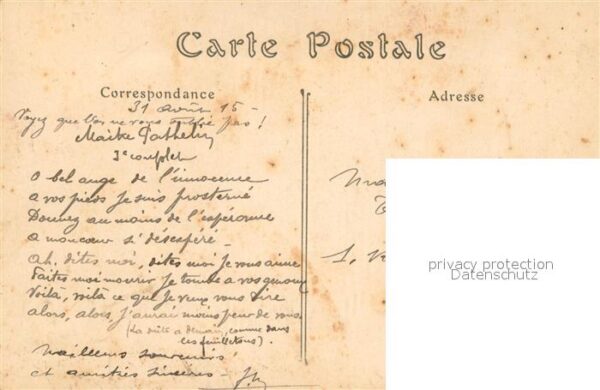 Carte Postale
Correspondance
Adresse
31 août 15 -
Voyez que l'on ne vous oublie pas !
Maitre Pathelin
3e couplet
O bel ange de l'innocence
a vos pieds je suis prosterné
Donnez au moins de l'espérance
a mon coeur si désespéré -
Ah, dites moi, dites moi je vous aime
Faites moi mourir je tombe a vos genoux
Voilà, voilà ce que je veux vous dire
alors, alors, j'aurai moins peur de vous
(La suite a demain, comme dans
les feuilletons).
Meilleurs souvenirs
et amitiés sincères -
privacy protection
Datenschutz